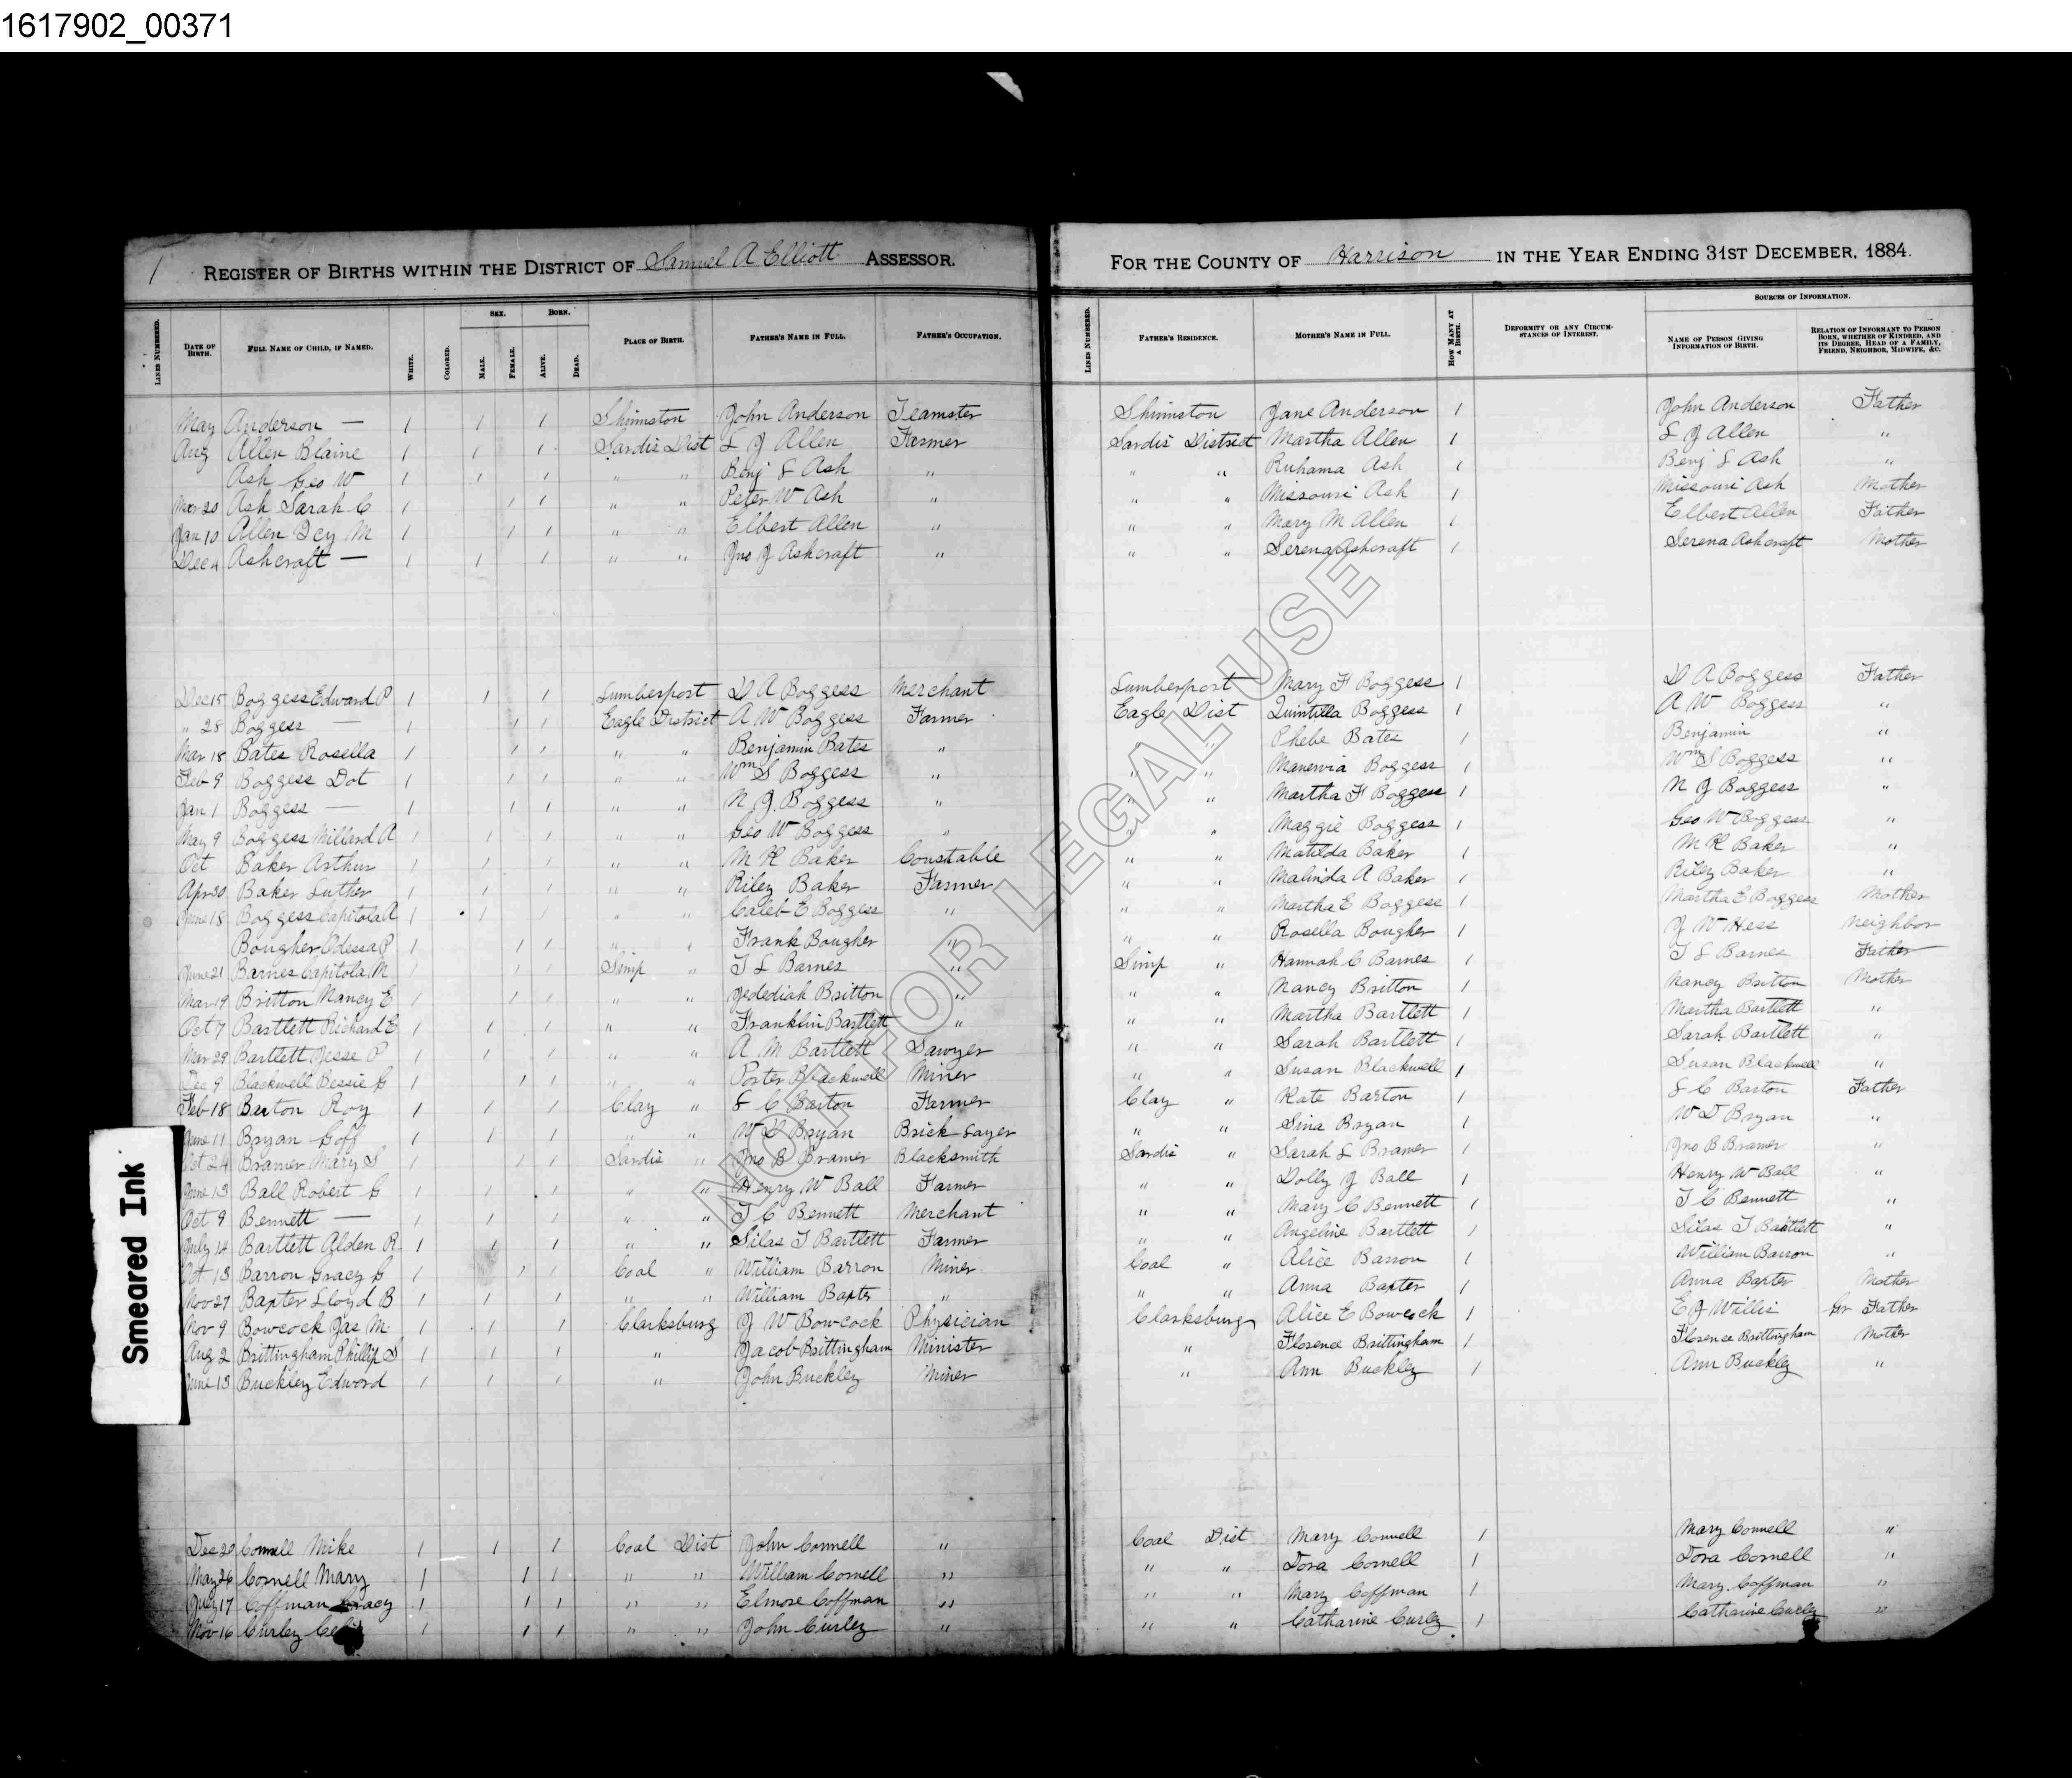 1617902_00371
1 REGISTER OF BIRTHS WITHIN THE DISTRICT OF Samuel A Elliott ASSESSOR. FOR THE COUNTY OF Harrison IN THE YEAR ENDING 31ST DECEMBER, 1884.
LINES NUMBERED. DATE OF BIRTH. FULL NAME OF CHILD, IF NAMED. WHITE. COLORED. SEX. MALE. FEMALE. BORN. ALIVE. DEAD. PLACE OF BIRTH. FATHER'S NAME IN FULL. FATHER'S OCCUPATION. LINES NUMBERED. FATHER'S RESIDENCE. MOTHER'S NAME IN FULL. HOW MANY AT A BIRTH. DEFORMITY OR ANY CIRCUMSTANCES OF INTEREST. SOURCES OF INFORMATION. NAME OF PERSON GIVING INFORMATION OF BIRTH. RELATION OF INFORMANT TO PERSON BORN, WHETHER OF KINDRED, AND ITS DEGREE, HEAD OF A FAMILY, FRIEND, NEIGHBOR, MIDWIFE, &C.
May Anderson — 1 1 1 Shinnston John Anderson Teamster Shinnston Jane Anderson 1 John Anderson Father
Aug Allen Blaine 1 1 1 Sardis Dist L J Allen Farmer Sardis District Martha Allen 1 L J Allen "
Ash Geo W 1 1 1 " " Benj F Ash " " " Ruhama Ash 1 Benj F Ash "
Mar 20 Ash Sarah C 1 1 1 " " Peter W Ash " " " Missouri Ash 1 Missouri Ash Mother
Jan 10 Allen Icy M 1 1 1 " " Elbert Allen " " " Mary M Allen 1 Elbert Allen Father
Dec 4 Ashcraft — 1 1 1 " " Jno J Ashcraft " " " Serena Ashcraft 1 Serena Ashcraft Mother
Dec 15 Boggess Edward P 1 1 1 Lumberport D A Boggess Merchant Lumberport Mary F Boggess 1 D A Boggess Father
" 28 Boggess — 1 1 1 Eagle District A W Boggess Farmer Eagle Dist Quintilla Boggess 1 A W Boggess "
Mar 18 Bates Rosella 1 1 1 " " Benjamin Bates " " Phebe Bates 1 Benjamin "
Feb 9 Boggess Dot 1 1 1 " " Wm S Boggess " " " Manervia Boggess 1 Wm S Boggess "
Jan 1 Boggess — 1 1 1 " " N J Boggess " " " Martha F Boggess 1 N J Boggess "
May 9 Boggess Millard A 1 1 1 " " Geo W Boggess " " " Maggie Boggess 1 Geo W Boggess "
Oct Baker Arthur 1 1 1 " " M K Baker Constable " " Matilda Baker 1 M K Baker "
Apr 30 Baker Luther 1 1 1 " " Riley Baker Farmer " " Malinda A Baker 1 Riley Baker "
June 18 Boggess Capitola A 1 1 1 " " Caleb E Boggess " " " Martha E Boggess 1 Martha E Boggess Mother
Bougher Odessa P 1 1 1 " " Frank Bougher " " " Rosella Bougher 1 J W Hess Neighbor
June 21 Barnes Capitola M 1 1 1 Simp " T L Barnes " Simp " Hannah C Barnes 1 T L Barnes Father
Mar 19 Britton Nancy E 1 1 1 " " Jedediah Britton " " " Nancy Britton 1 Nancy Britton Mother
Oct 7 Bartlett Richard E 1 1 1 " " Franklin Bartlett " " " Martha Bartlett 1 Martha Bartlett "
Mar 29 Bartlett Jesse P 1 1 1 " " A M Bartlett Sawyer " " Sarah Bartlett 1 Sarah Bartlett "
Dec 9 Blackwell Bessie G 1 1 1 " " Porter Blackwell Miner " " Susan Blackwell 1 Susan Blackwell "
Feb 18 Barton Roy 1 1 1 Clay " F C Barton Farmer Clay " Kate Barton 1 F C Barton Father
June 11 Bryan Goff 1 1 1 " " W D Bryan Brick Layer " " Sina Bryan 1 W D Bryan "
Oct 24 Bramer Mary S 1 1 1 Sardis " Jno B Bramer Blacksmith Sardis " Sarah L Bramer 1 Jno B Bramer "
June 13 Ball Robert G 1 1 1 " " Henry W Ball Farmer " " Dolly J Ball 1 Henry W Ball "
Oct 9 Bennett — 1 1 1 " " T C Bennett Merchant " " Mary C Bennett 1 T C Bennett "
July 14 Bartlett Alden R 1 1 1 " " Silas T Bartlett Farmer " " Angeline Bartlett 1 Silas T Bartlett "
Oct 13 Barron Gracy G 1 1 1 Coal " William Barron Miner Coal " Alice Barron 1 William Barron "
Nov 27 Baxter Lloyd B 1 1 1 " " William Baxter " " " Anna Baxter 1 Anna Baxter Mother
Nov 9 Bowcock Jas M 1 1 1 Clarksburg J W Bowcock Physician Clarksburg Alice E Bowcock 1 E J Willis Gr Father
Aug 2 Brittingham Phillip S 1 1 1 " Jacob Brittingham Minister " Florence Brittingham 1 Florence Brittingham Mother
June 13 Buckley Edword 1 1 1 " John Buckley Miner " Ann Buckley 1 Ann Buckley "
Dec 20 Connell Mike 1 1 1 Coal Dist John Connell " Coal Dist Mary Connell 1 Mary Connell "
May 26 Cornell Mary 1 1 1 " " William Cornell " " " Dora Cornell 1 Dora Cornell "
July 17 Coffman Gracy 1 1 1 " " Elmore Coffman " " " Mary Coffman 1 Mary Coffman "
Nov 16 Curley 1 1 1 " " John Curley " " " Catharine Curley 1 Catharine Curley "
Smeared Ink
NOT FOR LEGAL USE